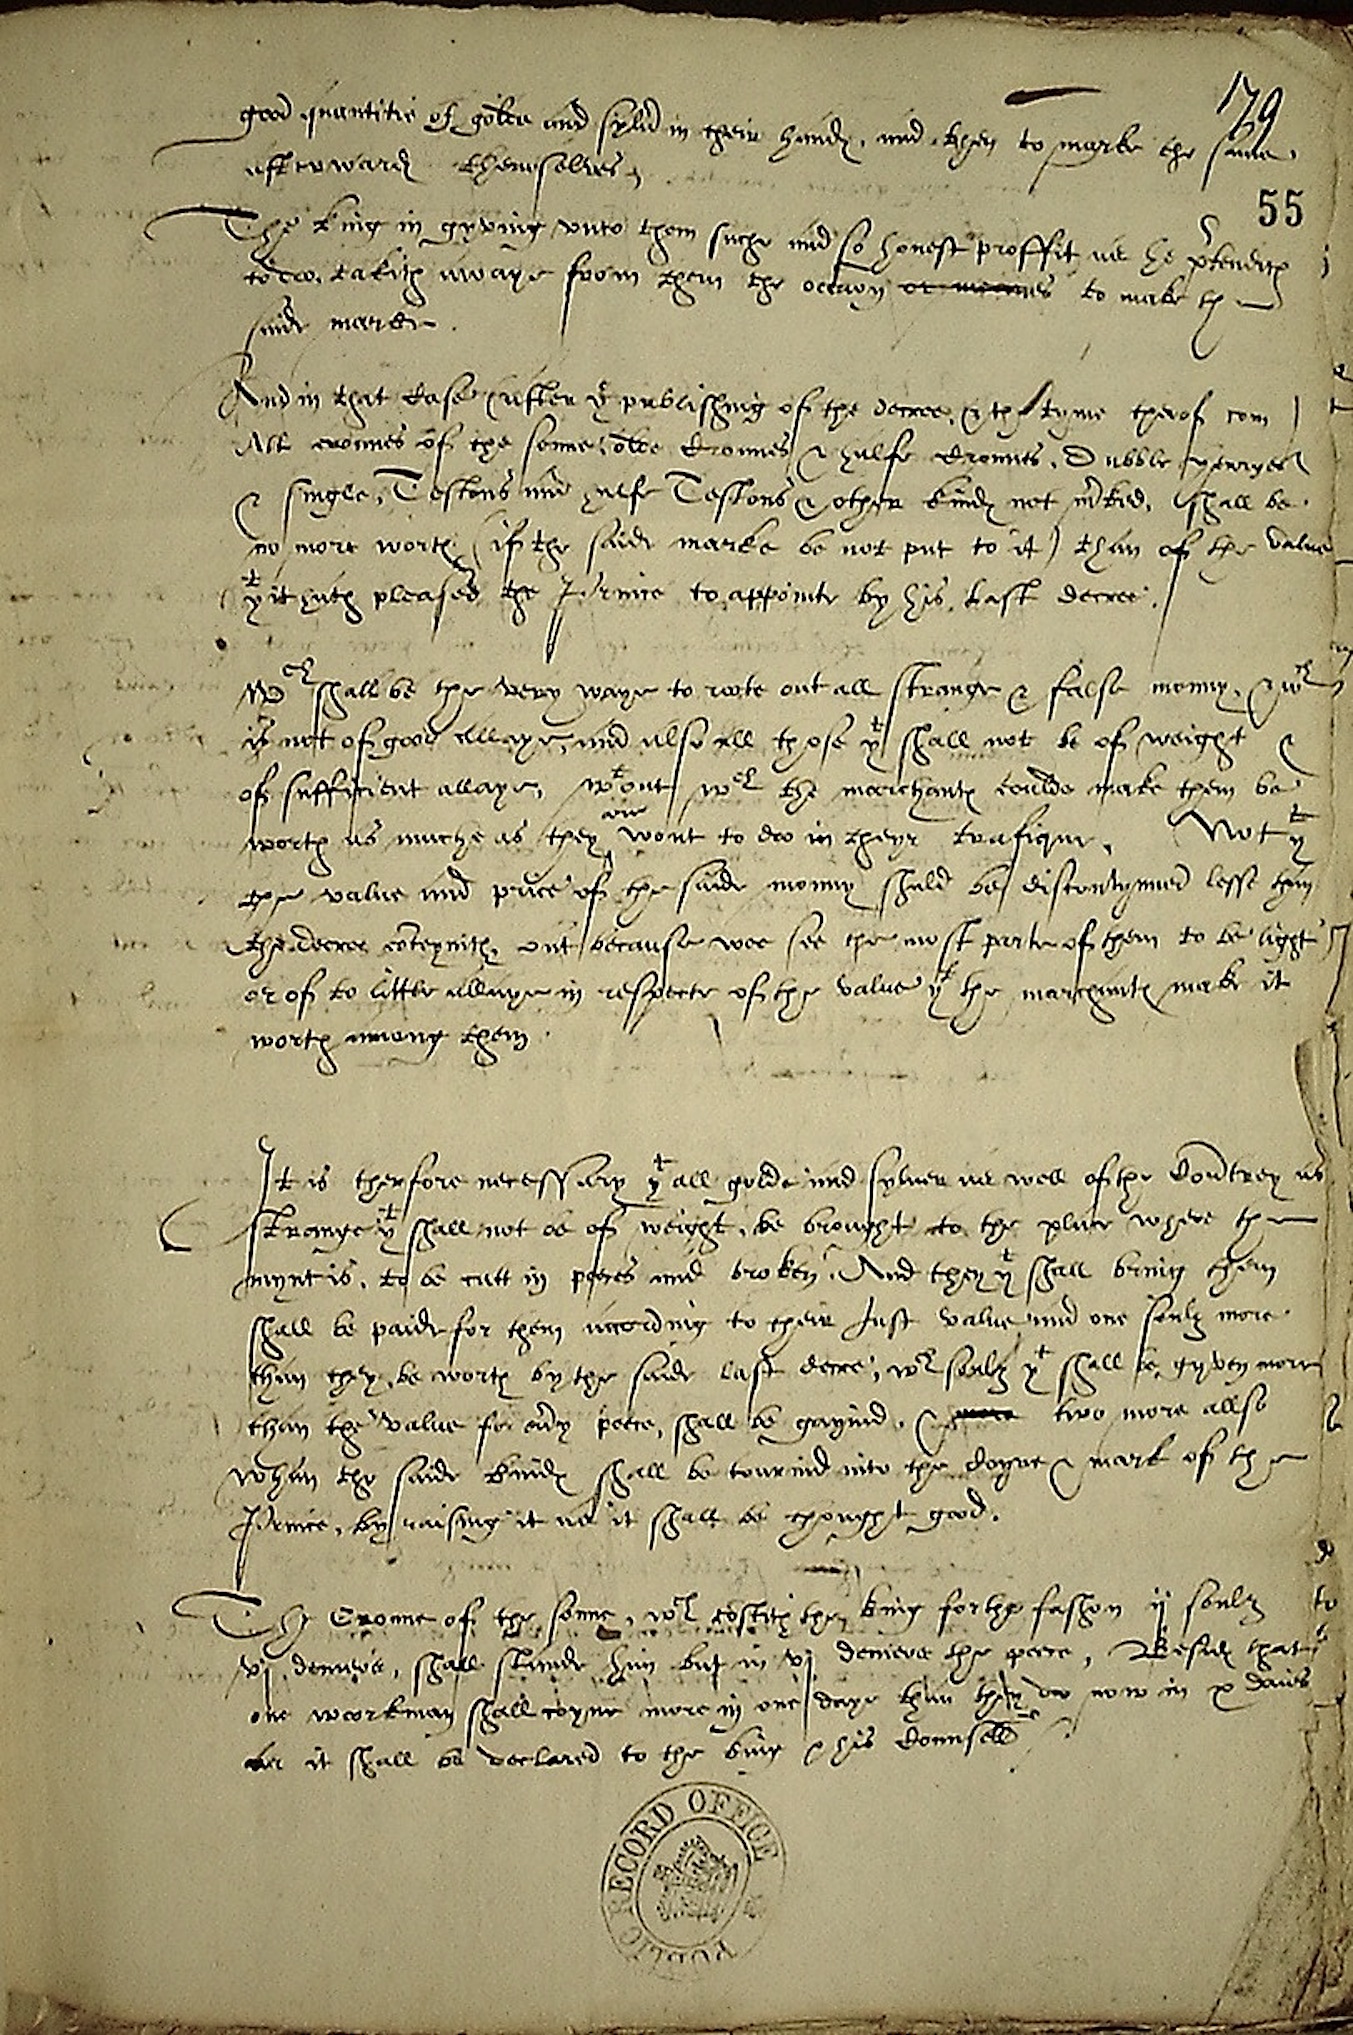 79
good quantitie of golde and sylũ in their handꝭ, and then to marke the same
afterwardꝭ themselves,
55
The king in gyving vnto them suche and so honest proffit as he ꝑtendith
to doo, takith awaye from them the occaōn or meanes to make the
saide marke.
And in that case (after yͤ publishing of the decree, & the tyme therof com)
All crounes of the sonne, olde crounes & halfe crounes, Dubble
& single, Testons and halfe Testons & other kindꝭ not m̃ked, shall be
no more worth (if the saide marke be not put to it) than of the value
yͭ it hath pleased the Prince to appointe by his last decree.
Wᶜʰ shall be the very waye to roote out all strange & false monny, & wᶜʰ
is not of good allaye, and also all those yͭ shall not be of weight &
of sufficient allaye, wͭout wᶜʰ the merchantꝭ coulde make them be
worth as muche as they are wont to doo in theyr trafique. Not yͭ
the value and price of the saide monny shuld be discontynued lesse than
the decree cōteynith, but because wee see the most parte of them to be light
or of to little allaye in respecte of the value yͭ the marchantꝭ make it
worth among them.
It is therfore necessary yͭ all golde and sylver as well of the Coũtrey as
strange yͭ shall not be of weight, be brought to the place where the
mynt is, to be cutt in peeces and broken. And they yͭ shall bring them
shall be paide for them according to their Just value and one soulz more
than they be worth by the saide last decree, wᶜʰ soulz yͭ shall be gyven more
than the value for eũy peece, shall be gayned, & more two more allso
whan the saide kindꝭ shall be tourned into the coyne & mark of the
Prince, by raising it as it shall be thought good.
The Croune of the sonne, wᶜʰ costith the king for the fashon ij soulz
vj deniers, shall stande him but in vj deniers the peece, Besidꝭ that
one workman shall coyne more in one daye than they doo now in x daies
as it shall be declared to the king & his Counsell
PUBLIC RECORD OFFICE